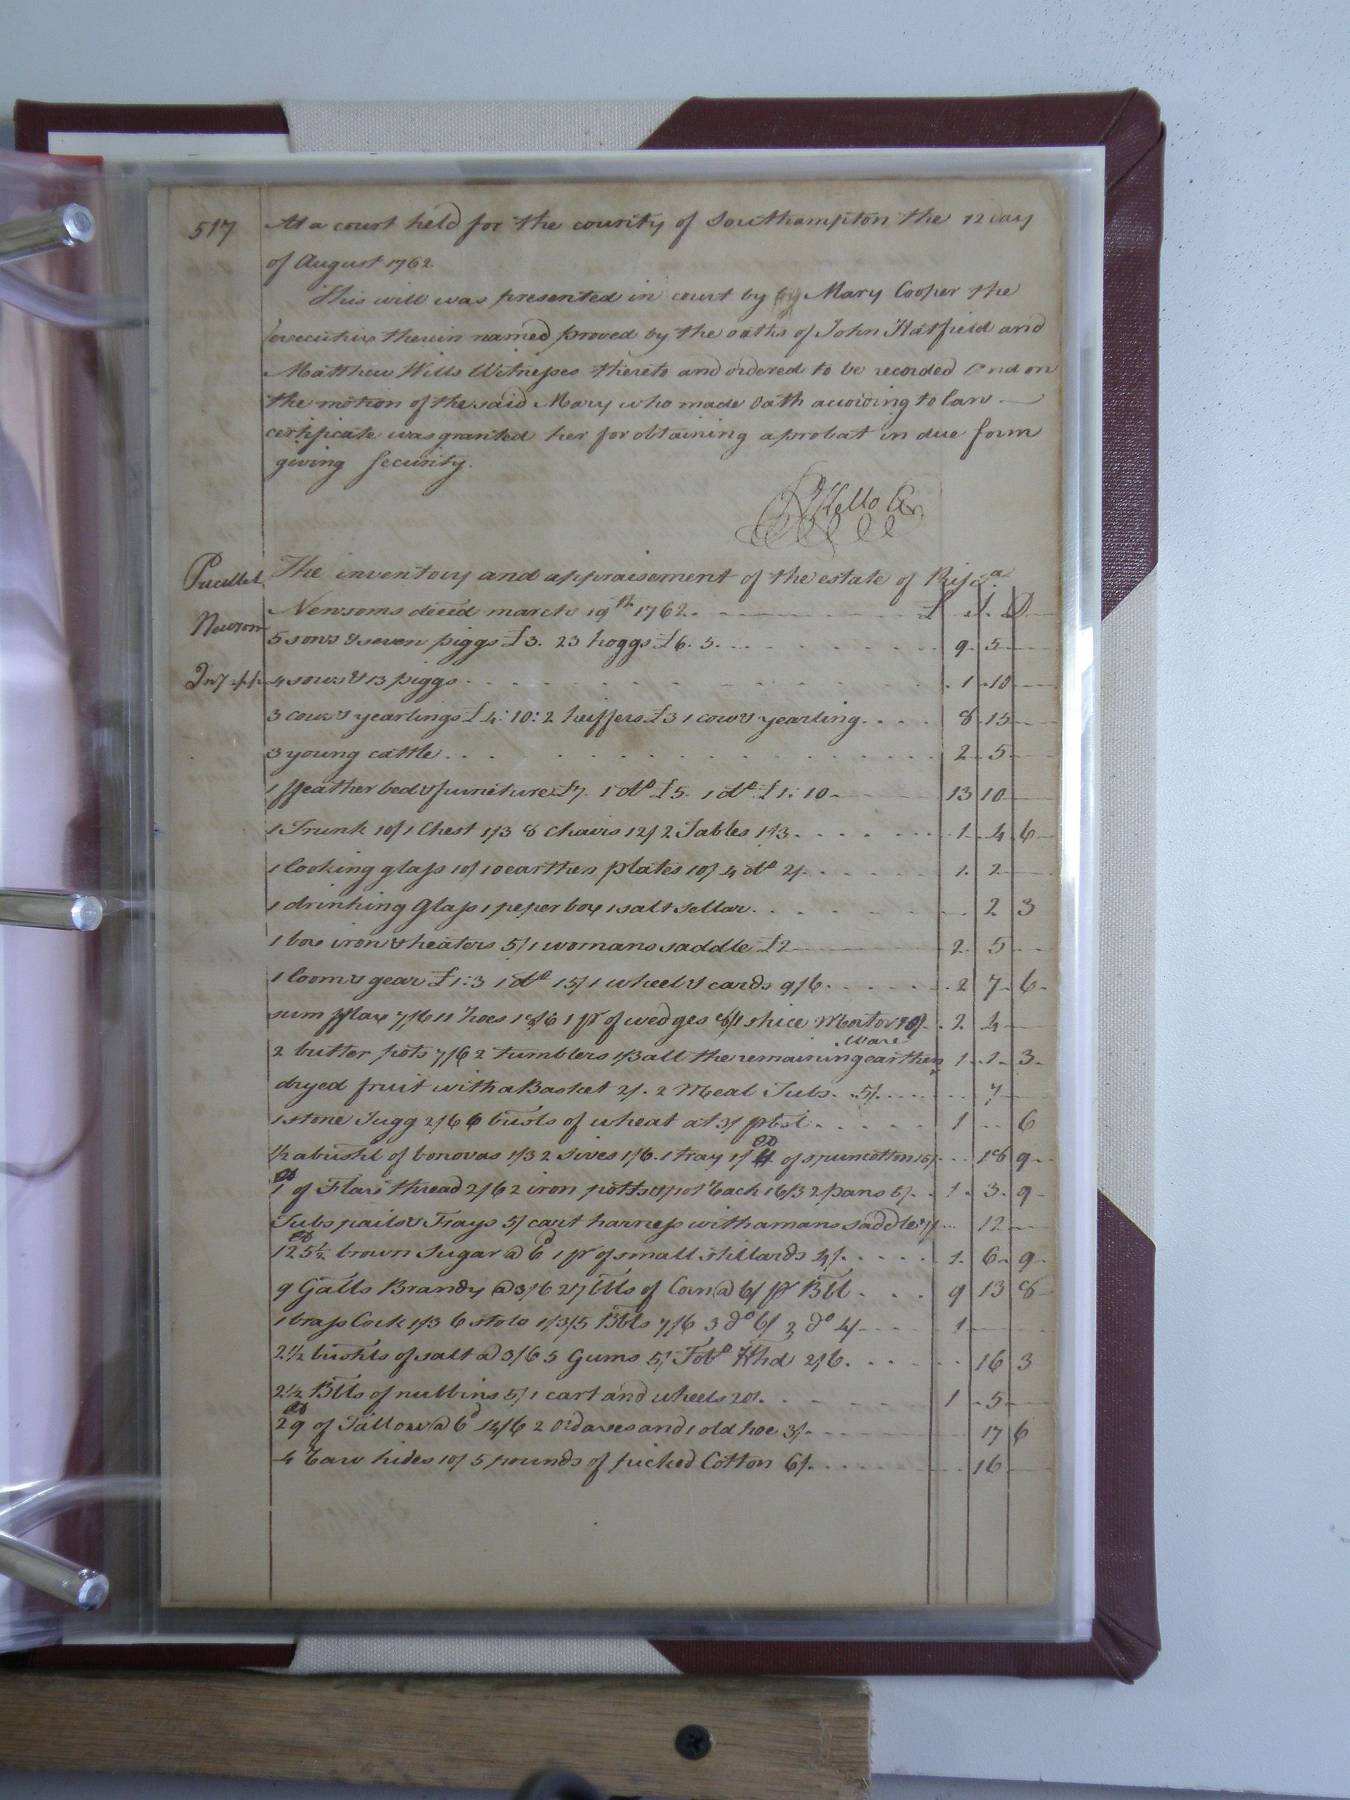 517
At a court held for the county of Southampton the 12 day
of August 1762
This will was presented in court by by Mary Cooper the
executrix therein named proved by the oaths of John Hatfield and
Matthew Wills Witnesses thereto and ordered to be recorded And on
the motion of the said Mary who made Oath according to law
certificate was granted her for obtaining a probat in due form
giving security.
The inventory and appraisement of the estate of
Newsom
Newsoms deced march 19th 1762. £ S. D
5 sows & seven piggs £3. 23 hoggs £6. 5. 9 5
4 sows & 13 piggs 1 10
3 cows & yearlings £4:10: 2 heiffers £3 1 cow & yearling 8 15
3 young cattle 2 5
1 ffeather bed & furneture £7 1 do £5. 1 do £1:10 13 10
1 Trunk 10/ 1 Chest 1/3 8 Chairs 12/ 2 Tables 1/3 1 4 6
1 looking glass 10/ 10 earthen plates 10/ 4 do 2/ 1 2
1 drinking Glass 1 peper box 1 salt sellar 2 3
1 box iron & heaters 5/ 1 womans saddle £2 2 5
1 loom & gear £1:3 1 do 15/ 1 wheel & cards 9/6 2 7 6
sum fflax 7/6 11 hoes 1 pr of wedges 2 4
2 butter pots 7/6 2 tumblers 1/3 all the remaining earthen ware 1 1 3
dryed fruit with a Basket 2/. 2 Meal Tubs 5/. 7
1 stone Jugg 2/6 6 bushs of wheat at 3/ 1 6
½ a bushl of bonovas 1/3 2 sives 1/6. 1 tray 1/ of spun cotton 15/ 18 9
of Flax thread 2/6 2 iron potts & pot 2 pans 5/. 1 3 9
Tubs pails & Trays 5/ cart harness with a mans saddle 7/ 12
brown Sugar @ 6d 1 pr of small stillards 4/. 1 6 9
9 Galls Brandy @ 3/6 27 bbls of Corn @ 6/ pr Bbl 9 13 8
1 brass Cock 1/3 1/3 5 Bbls 7/6 3 do 6/ 2 do 4/ 1
2½ bushls of salt @ 3/6 5 Gums 5/. Tobo Hhd 2/6. 16 3
2½ Bbls of nubbins 5/ 1 cart and wheels 20/. 1 5
29 of Tallow @ 6d 14/6 2 Old axes and 1 old hoe 3/ 17 6
4 raw hides 10/ 5 pounds of picked Cotton 6/. 16